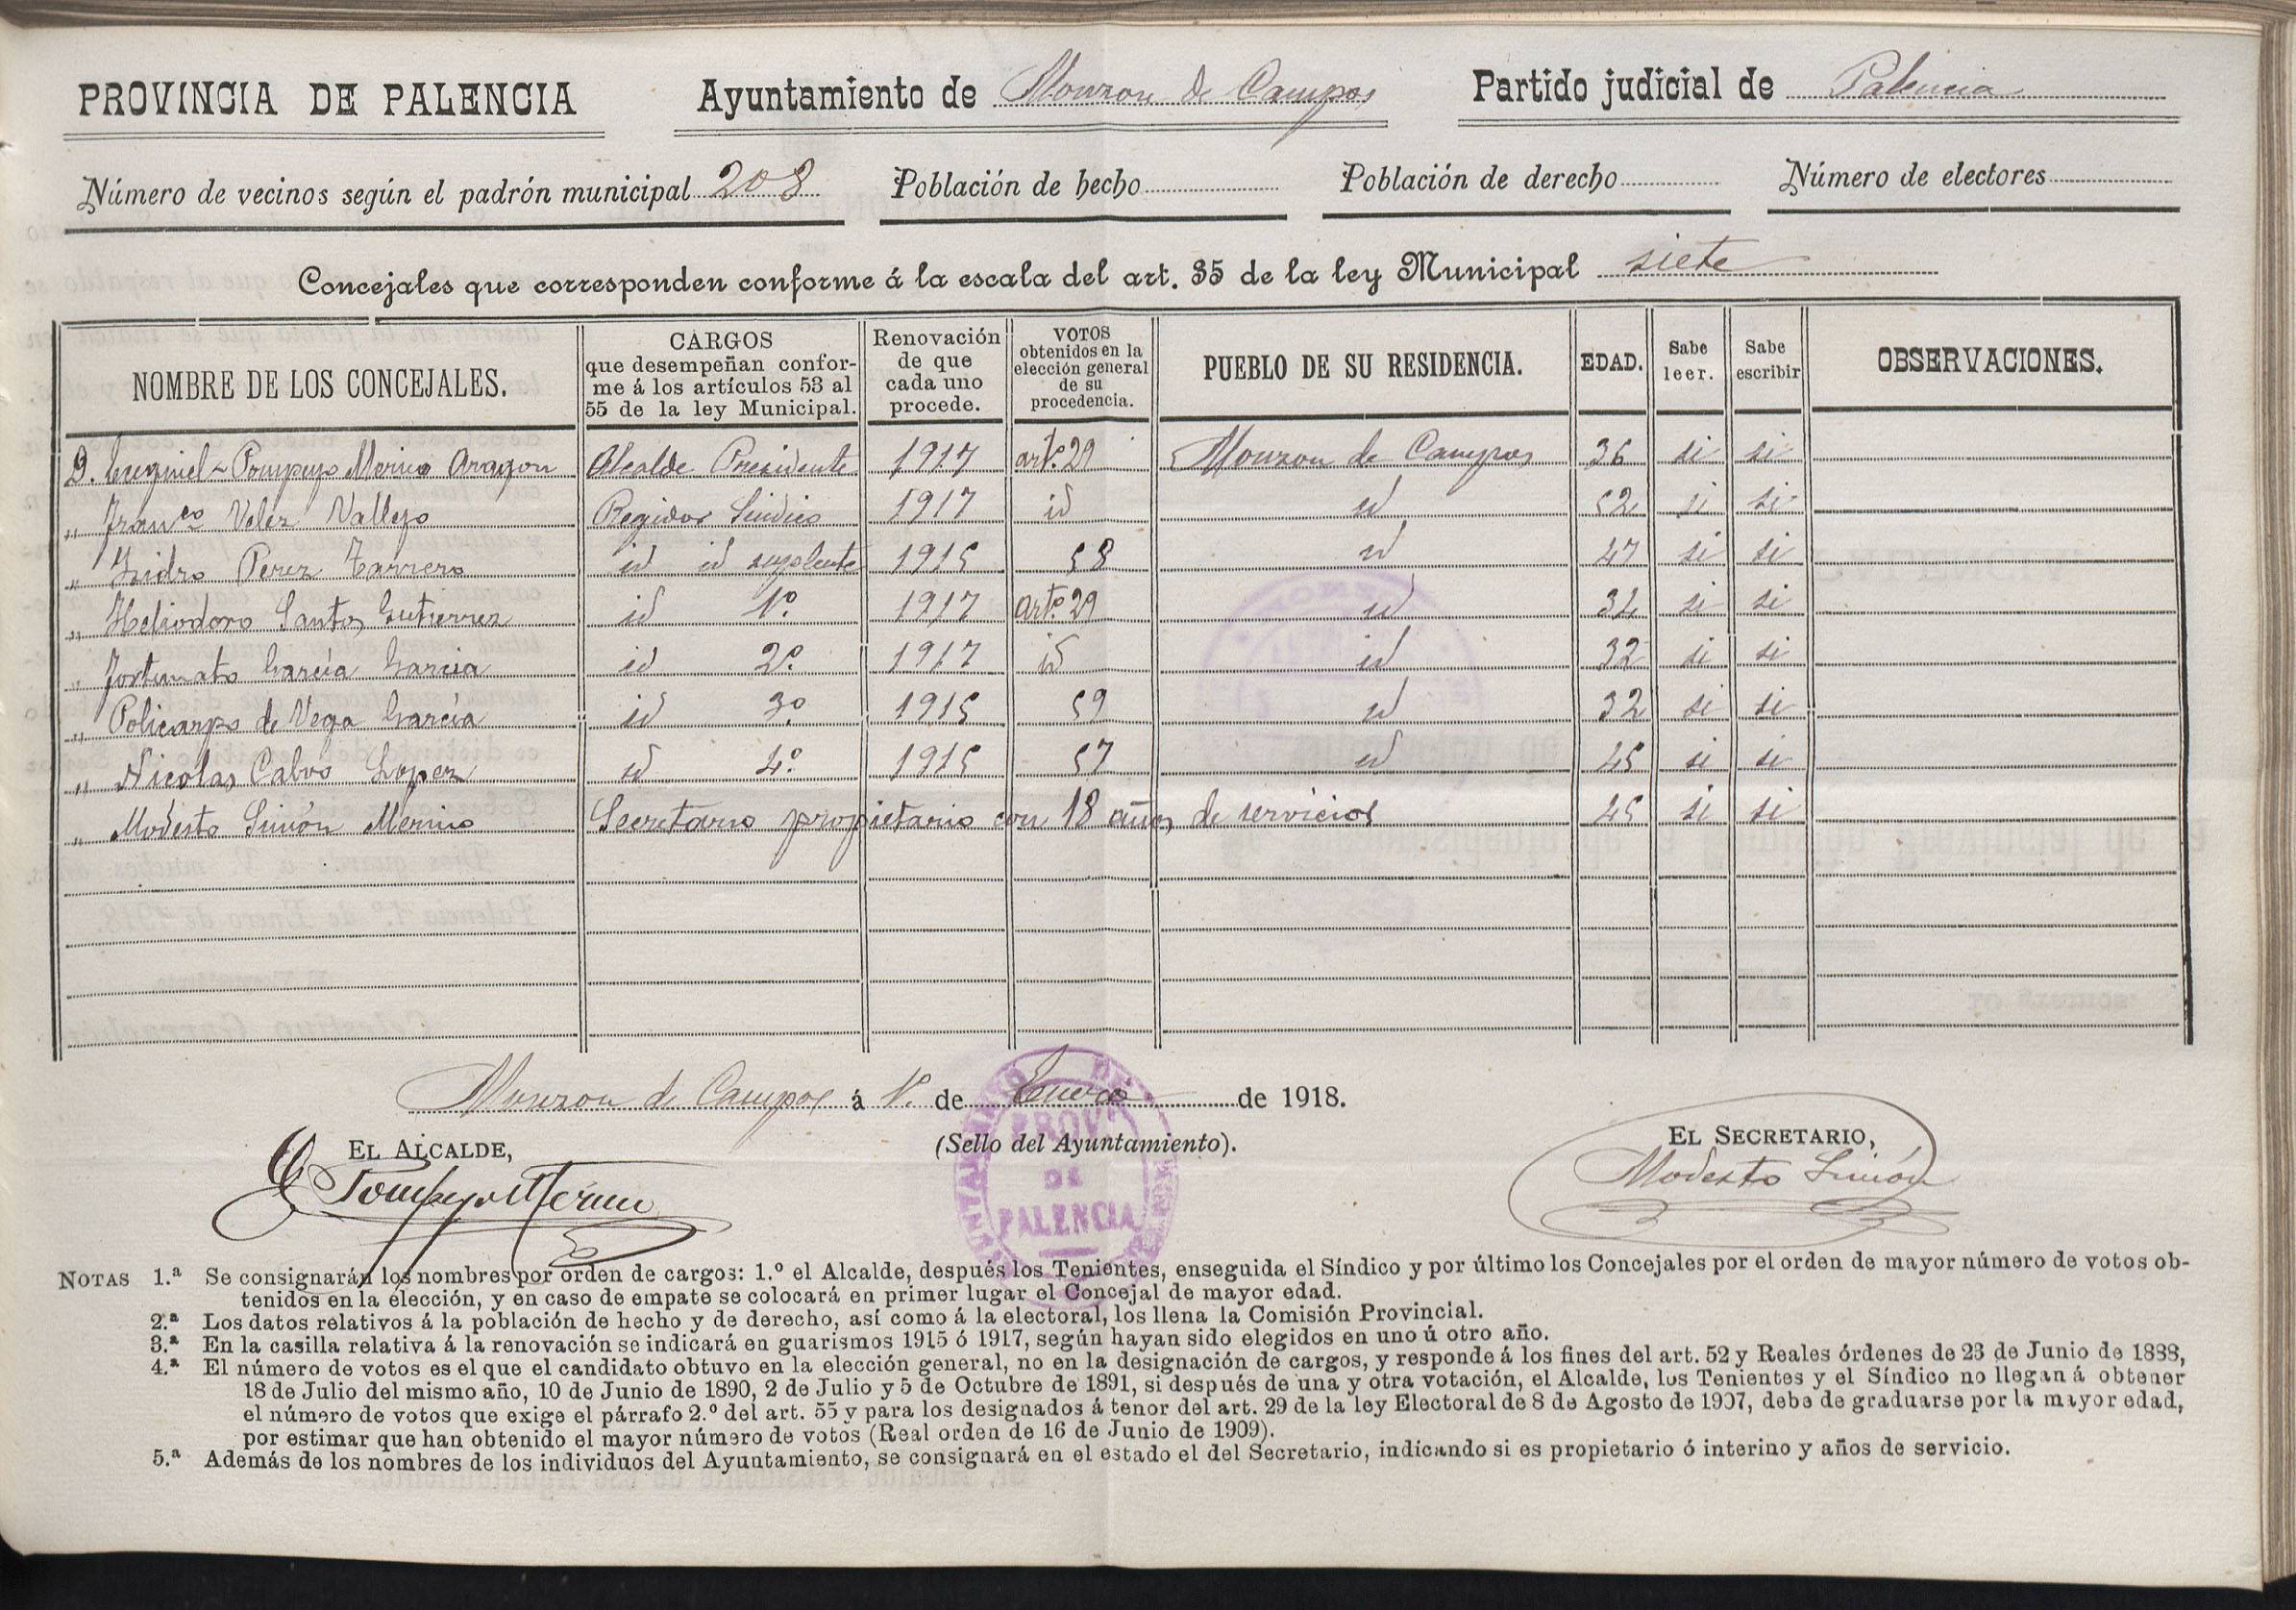 PROVINCIA DE PALENCIA Ayuntamiento de Monzon de Campos Partido judicial de Palencia
Número de vecinos según el padrón municipal 208 Población de hecho Población de derecho Número de electores
Concejales que corresponden conforme á la escala del art. 35 de la ley Municipal siete
NOMBRE DE LOS CONCEJALES. CARGOS que desempeñan conforme á los artículos 53 al 55 de la ley Municipal. Renovación de que cada uno procede. VOTOS obtenidos en la elección general de su procedencia. PUEBLO DE SU RESIDENCIA. EDAD. Sabe leer. Sabe escribir OBSERVACIONES.
D. Ecequiel-Pompeyo Merino Aragon Alcalde Presidente 1917 artº 29 Monzon de Campos 36 si si
„ Franco Velez Vallejo Regidor Sindico 1917 id id 52 si si
„ Isidro Perez Tarrero id id suplente 1915 58 id 47 si si
„ Heliodoro Santos Gutierrez id 1º 1917 artº 29 id 34 si si
„ Fortunato García Garcia id 2º 1917 id id 32 si si
„ Policarpo de Vega García id 3º 1915 59 id 32 si si
„ Nicolas Calvo Lopez id 4º 1915 57 id 45 si si
„ Modesto Simón Merino Secretario propietario con 18 años de servicios 45 si si
Monzon de Campos á 1º de Enero de 1918.
EL ALCALDE, (Sello del Ayuntamiento). EL SECRETARIO,
Pompeyo Merino Modesto Simón
PROVA DE PALENCIA
NOTAS 1.ª Se consignarán los nombres por orden de cargos: 1.º el Alcalde, después los Tenientes, enseguida el Síndico y por último los Concejales por el orden de mayor número de votos ob-
tenidos en la elección, y en caso de empate se colocará en primer lugar el Concejal de mayor edad.
2.ª Los datos relativos á la población de hecho y de derecho, así como á la electoral, los llena la Comisión Provincial.
3.ª En la casilla relativa á la renovación se indicará en guarismos 1915 ó 1917, según hayan sido elegidos en uno ú otro año.
4.ª El número de votos es el que el candidato obtuvo en la elección general, no en la designación de cargos, y responde á los fines del art. 52 y Reales órdenes de 23 de Junio de 1888,
18 de Julio del mismo año, 10 de Junio de 1890, 2 de Julio y 5 de Octubre de 1891, si después de una y otra votación, el Alcalde, los Tenientes y el Síndico no llegan á obtener
el número de votos que exige el párrafo 2.º del art. 55 y para los designados á tenor del art. 29 de la ley Electoral de 8 de Agosto de 1907, debe de graduarse por la mayor edad,
por estimar que han obtenido el mayor número de votos (Real orden de 16 de Junio de 1909).
5.ª Además de los nombres de los individuos del Ayuntamiento, se consignará en el estado el del Secretario, indicando si es propietario ó interino y años de servicio.